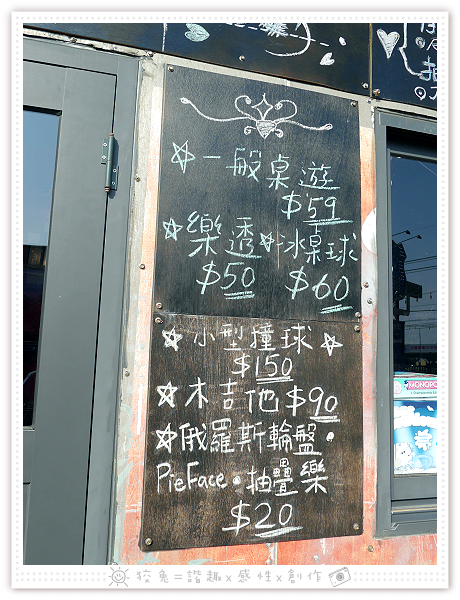 ☆一般桌遊
$59
☆樂透☆冰桌球
$50 $60
☆小型撞球☆
$150
☆木吉他$90
☆俄羅斯輪盤.
PieFace.抽疊樂
$20
MONOPO
狡兔=諧趣x感性x創作